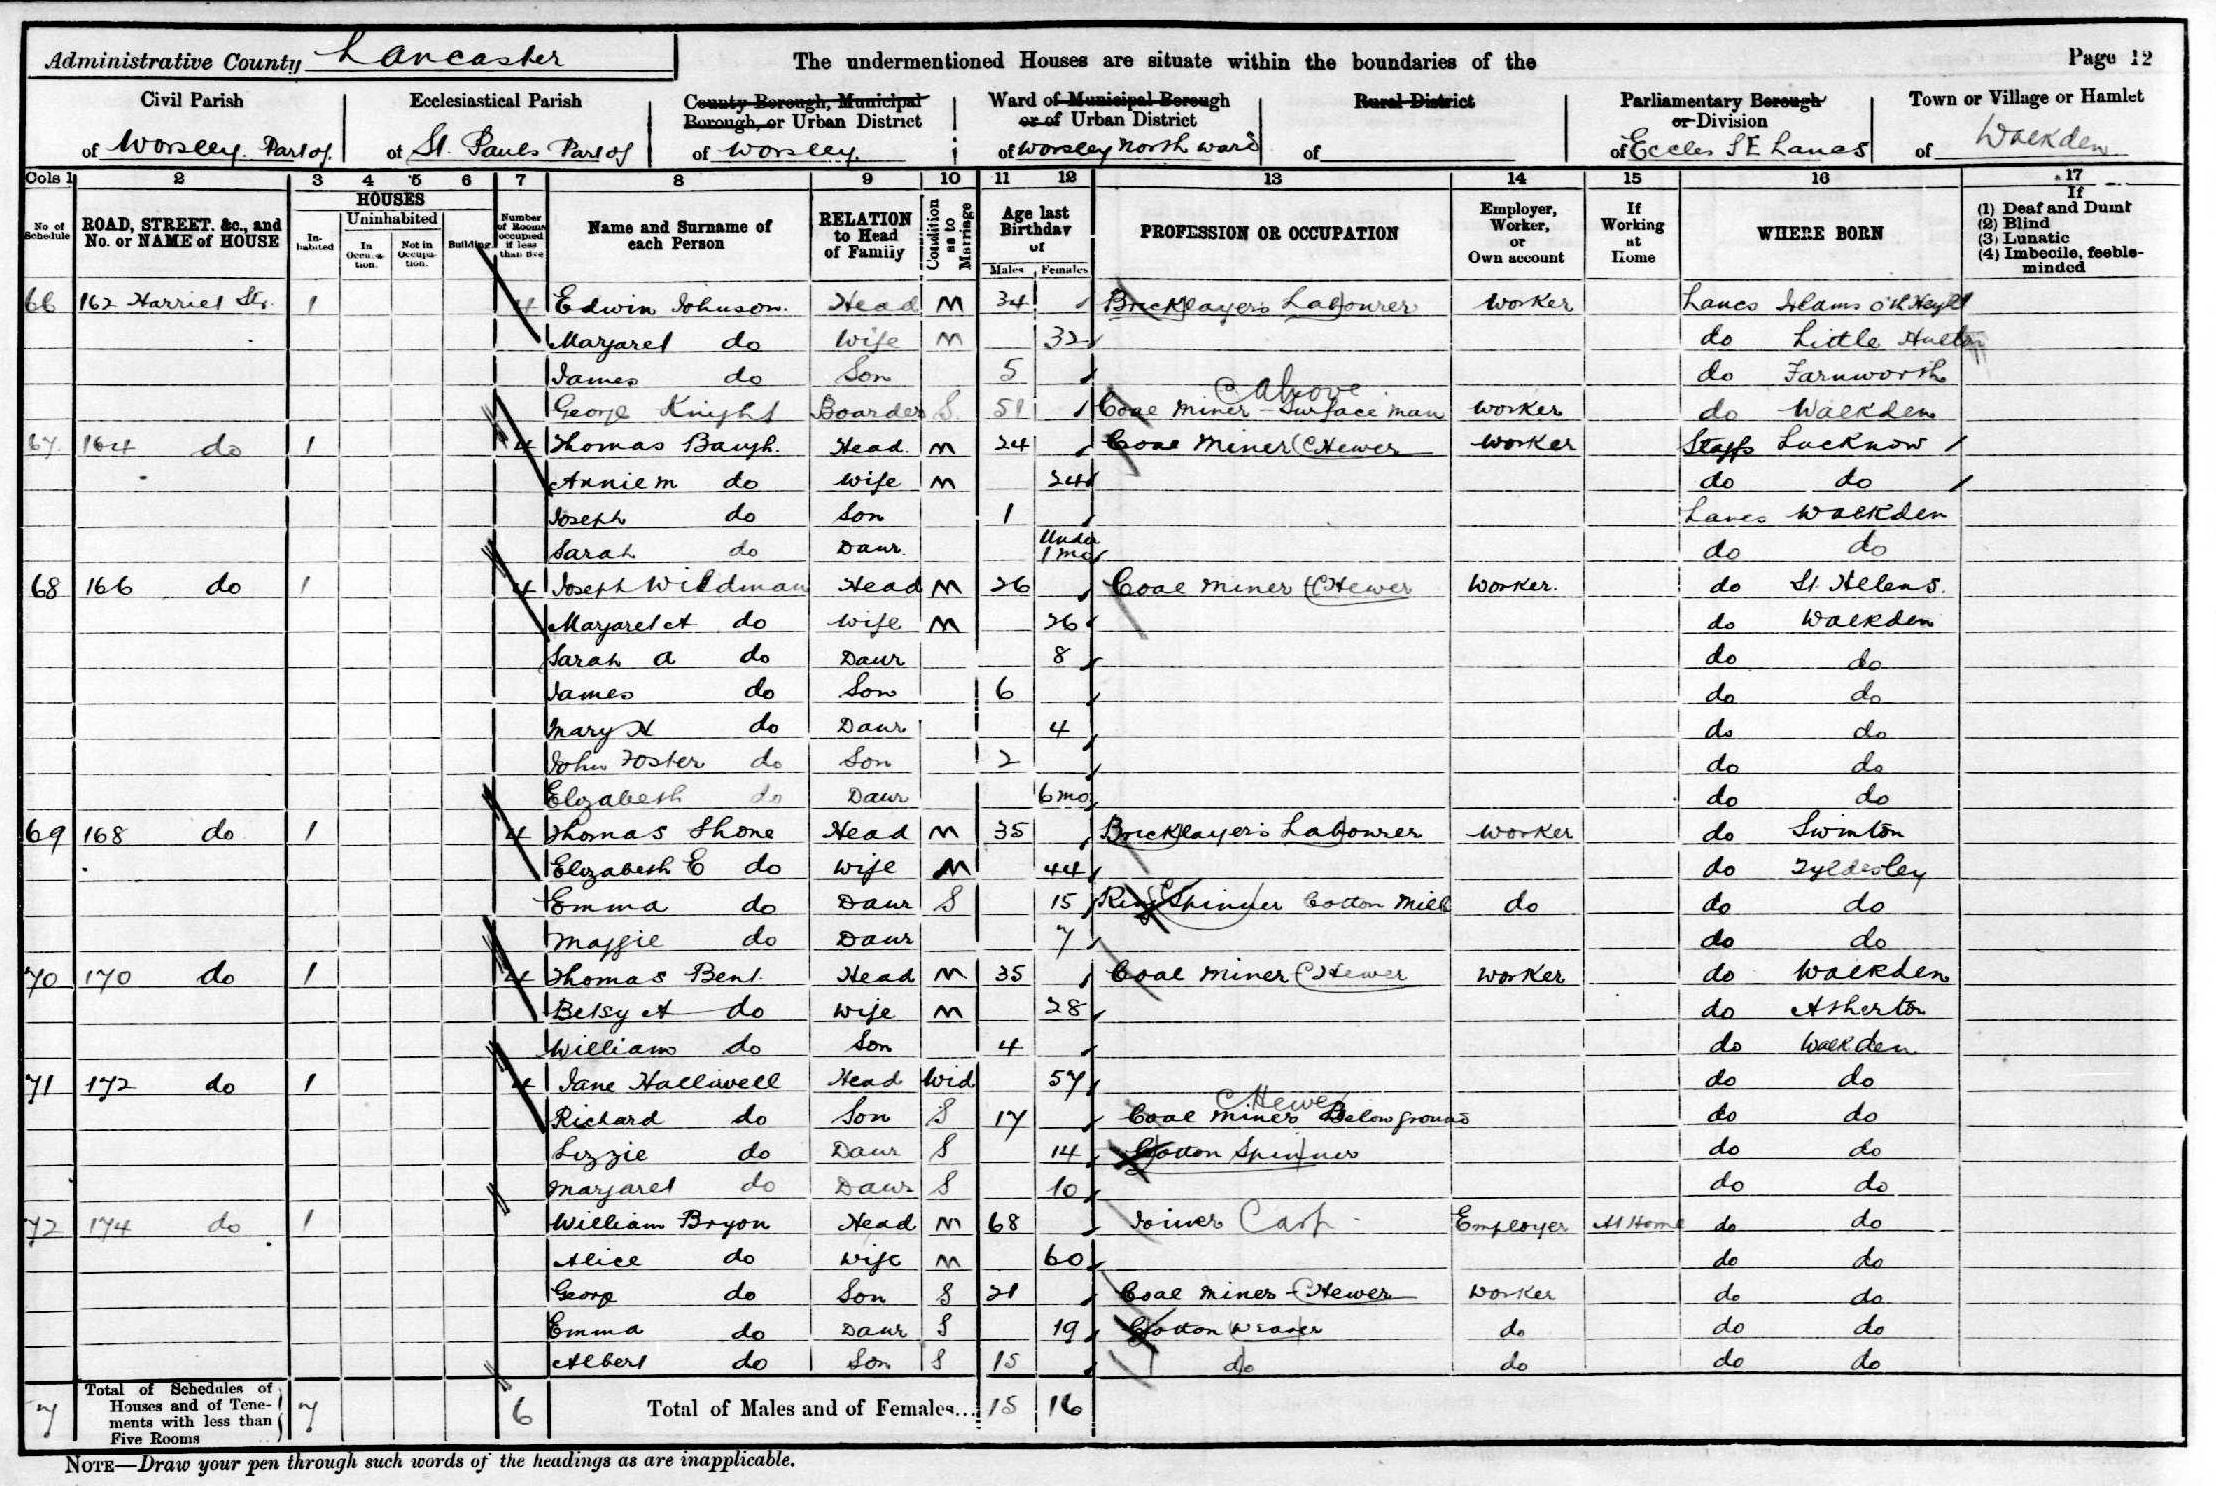 Administrative County Lancaster The undermentioned Houses are situate within the boundaries of the Page 12
Civil Parish of Worsley. Part of.
Ecclesiastical Parish of St. Pauls Part of
County Borough, Municipal Borough, or Urban District of Worsley.
Ward of Municipal Borough or of Urban District of Worsley North Ward
Rural District of
Parliamentary Borough or Division of Eccles S E Lancs
Town or Village or Hamlet of Walkden
Cols 1 2 3 4 5 6 7 8 9 10 11 12 13 14 15 16 17
No. of Schedule
ROAD, STREET, &c., and No. or NAME of HOUSE
HOUSES
In-habited
Uninhabited
In Occupa-tion.
Not in Occupa-tion.
Building
Number of Rooms occupied if less than five
Name and Surname of each Person
RELATION to Head of Family
Condition as to Marriage
Age last Birthday of
Males Females
PROFESSION OR OCCUPATION
Employer, Worker, or Own account
If Working at Home
WHERE BORN
If
(1) Deaf and Dumb
(2) Blind
(3) Lunatic
(4) Imbecile, feeble-minded
66 162 Harriet St. 1 4 Edwin Johnson. Head M 34 Bricklayer's Labourer Worker Lancs
Margaret do Wife M 32 do Little Hulton
James do Son 5 do Farnworth
Above
George Knight Boarder S. 51 Coal Miner - Surface man Worker do Walkden
67. 164 do 1 4 Thomas Baugh. Head. M 24 Coal Miner Hewer Worker Staffs Lucknow
Annie M do Wife M 24 do do
Joseph do Son 1 Lancs Walkden
Sarah do Daur. Under 1 mo do do
68 166 do 1 4 Joseph Wildman Head M 26 Coal Miner Hewer Worker. do St. Helens.
Margaret A do Wife M 26 do Walkden
Sarah A do Daur 8 do do
James do Son 6 do do
Mary H do Daur 4 do do
John Foster do Son 2 do do
Elizabeth do Daur 6 mo do do
69 168 do 1 4 Thomas Shone Head M 35 Bricklayer's Labourer Worker do Swinton
Elizabeth E do Wife M 44 do Tyldesley
Emma do Daur S 15 Ring Spinner Cotton Mill do do do
Maggie do Daur 7 do do
70 170 do 1 4 Thomas Bent. Head M 35 Coal Miner Hewer Worker do Walkden
Betsy A do Wife M 28 do Atherton
William do Son 4 do Walkden
71 172 do 1 4 Jane Halliwell Head Wid 57 do do
Hewer
Richard do Son S 17 Coal Miner Belowground do do
Lizzie do Daur S 14 Cotton Spinner do do
Margaret do Daur S 10 do do
72 174 do 1 William Bryon Head M 68 Joiner Carp Employer At Home do do
Alice do Wife M 60 do do
George do Son S 21 Coal Miner - Hewer Worker do do
Emma do Daur S 19 Cotton Weaver do do do
Albert do Son S 15 do do do do
7 Total of Schedules of Houses and of Tene-ments with less than Five Rooms 7 6 Total of Males and of Females... 15 16
NOTE—Draw your pen through such words of the headings as are inapplicable.